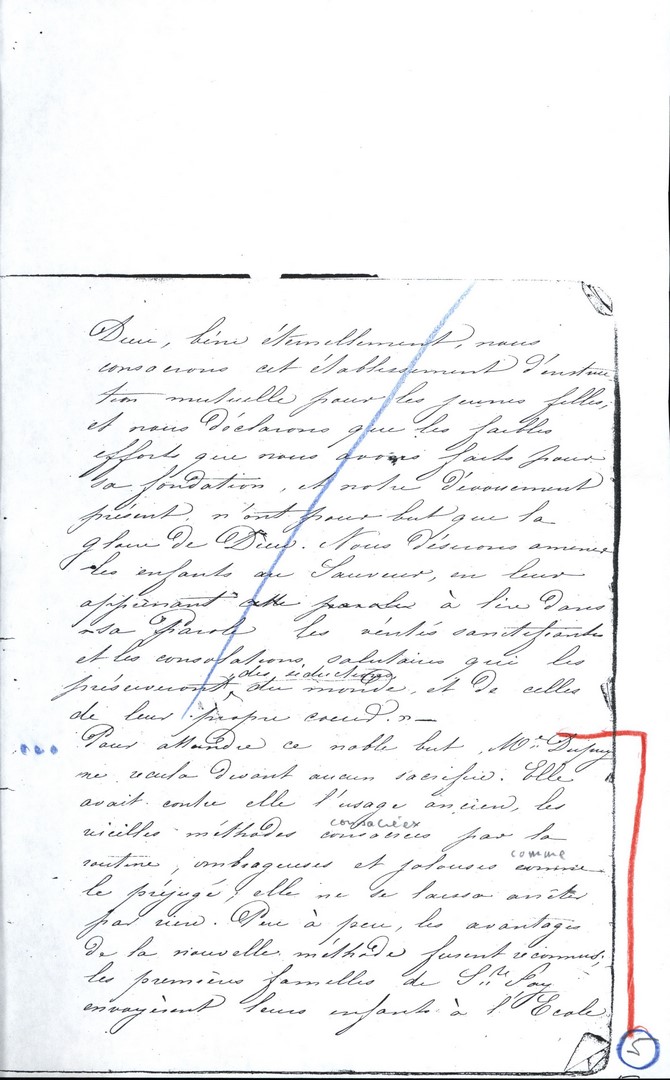 Dieu, béni éternellement, nous
consacrons cet établissement d'instruc
tion mutuelle pour les jeunes filles,
et nous déclarons que les faibles
efforts que nous avons faits pour
sa fondation, et notre dévouement
présent, n'ont pour but que la
gloire de Dieu. Nous désirons amener
les enfants au Sauveur, en leur
apprenant à lire dans
sa Parole les vérités sanctifiantes
et les consolations salutaires qui les
des séductions
préserveront du monde, et de celles
de leur propre coeur. »—
Pour atteindre ce noble but, Mme Dupuy
ne recula devant aucun sacrifice. Elle
avait contre elle l'usage ancien, les
consacrées
vieilles méthodes consacrées par la
comme
routine, ombrageuses et jalouses comme
le préjugé; elle ne se laissa arrêter
par rien. Peu à peu, les avantages
de la nouvelle méthode furent reconnus;
les premières familles de Ste Foy
envoyèrent leurs enfants à l'Ecole
5